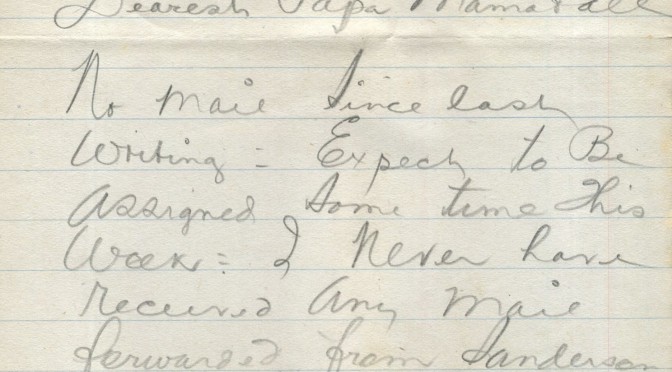 Dearest Papa Mama & all
No mail Since last
Writing = Expect to Be
Assigned Some time This
Week = I Never have
Received Any Mail
forwarded from Sanderson